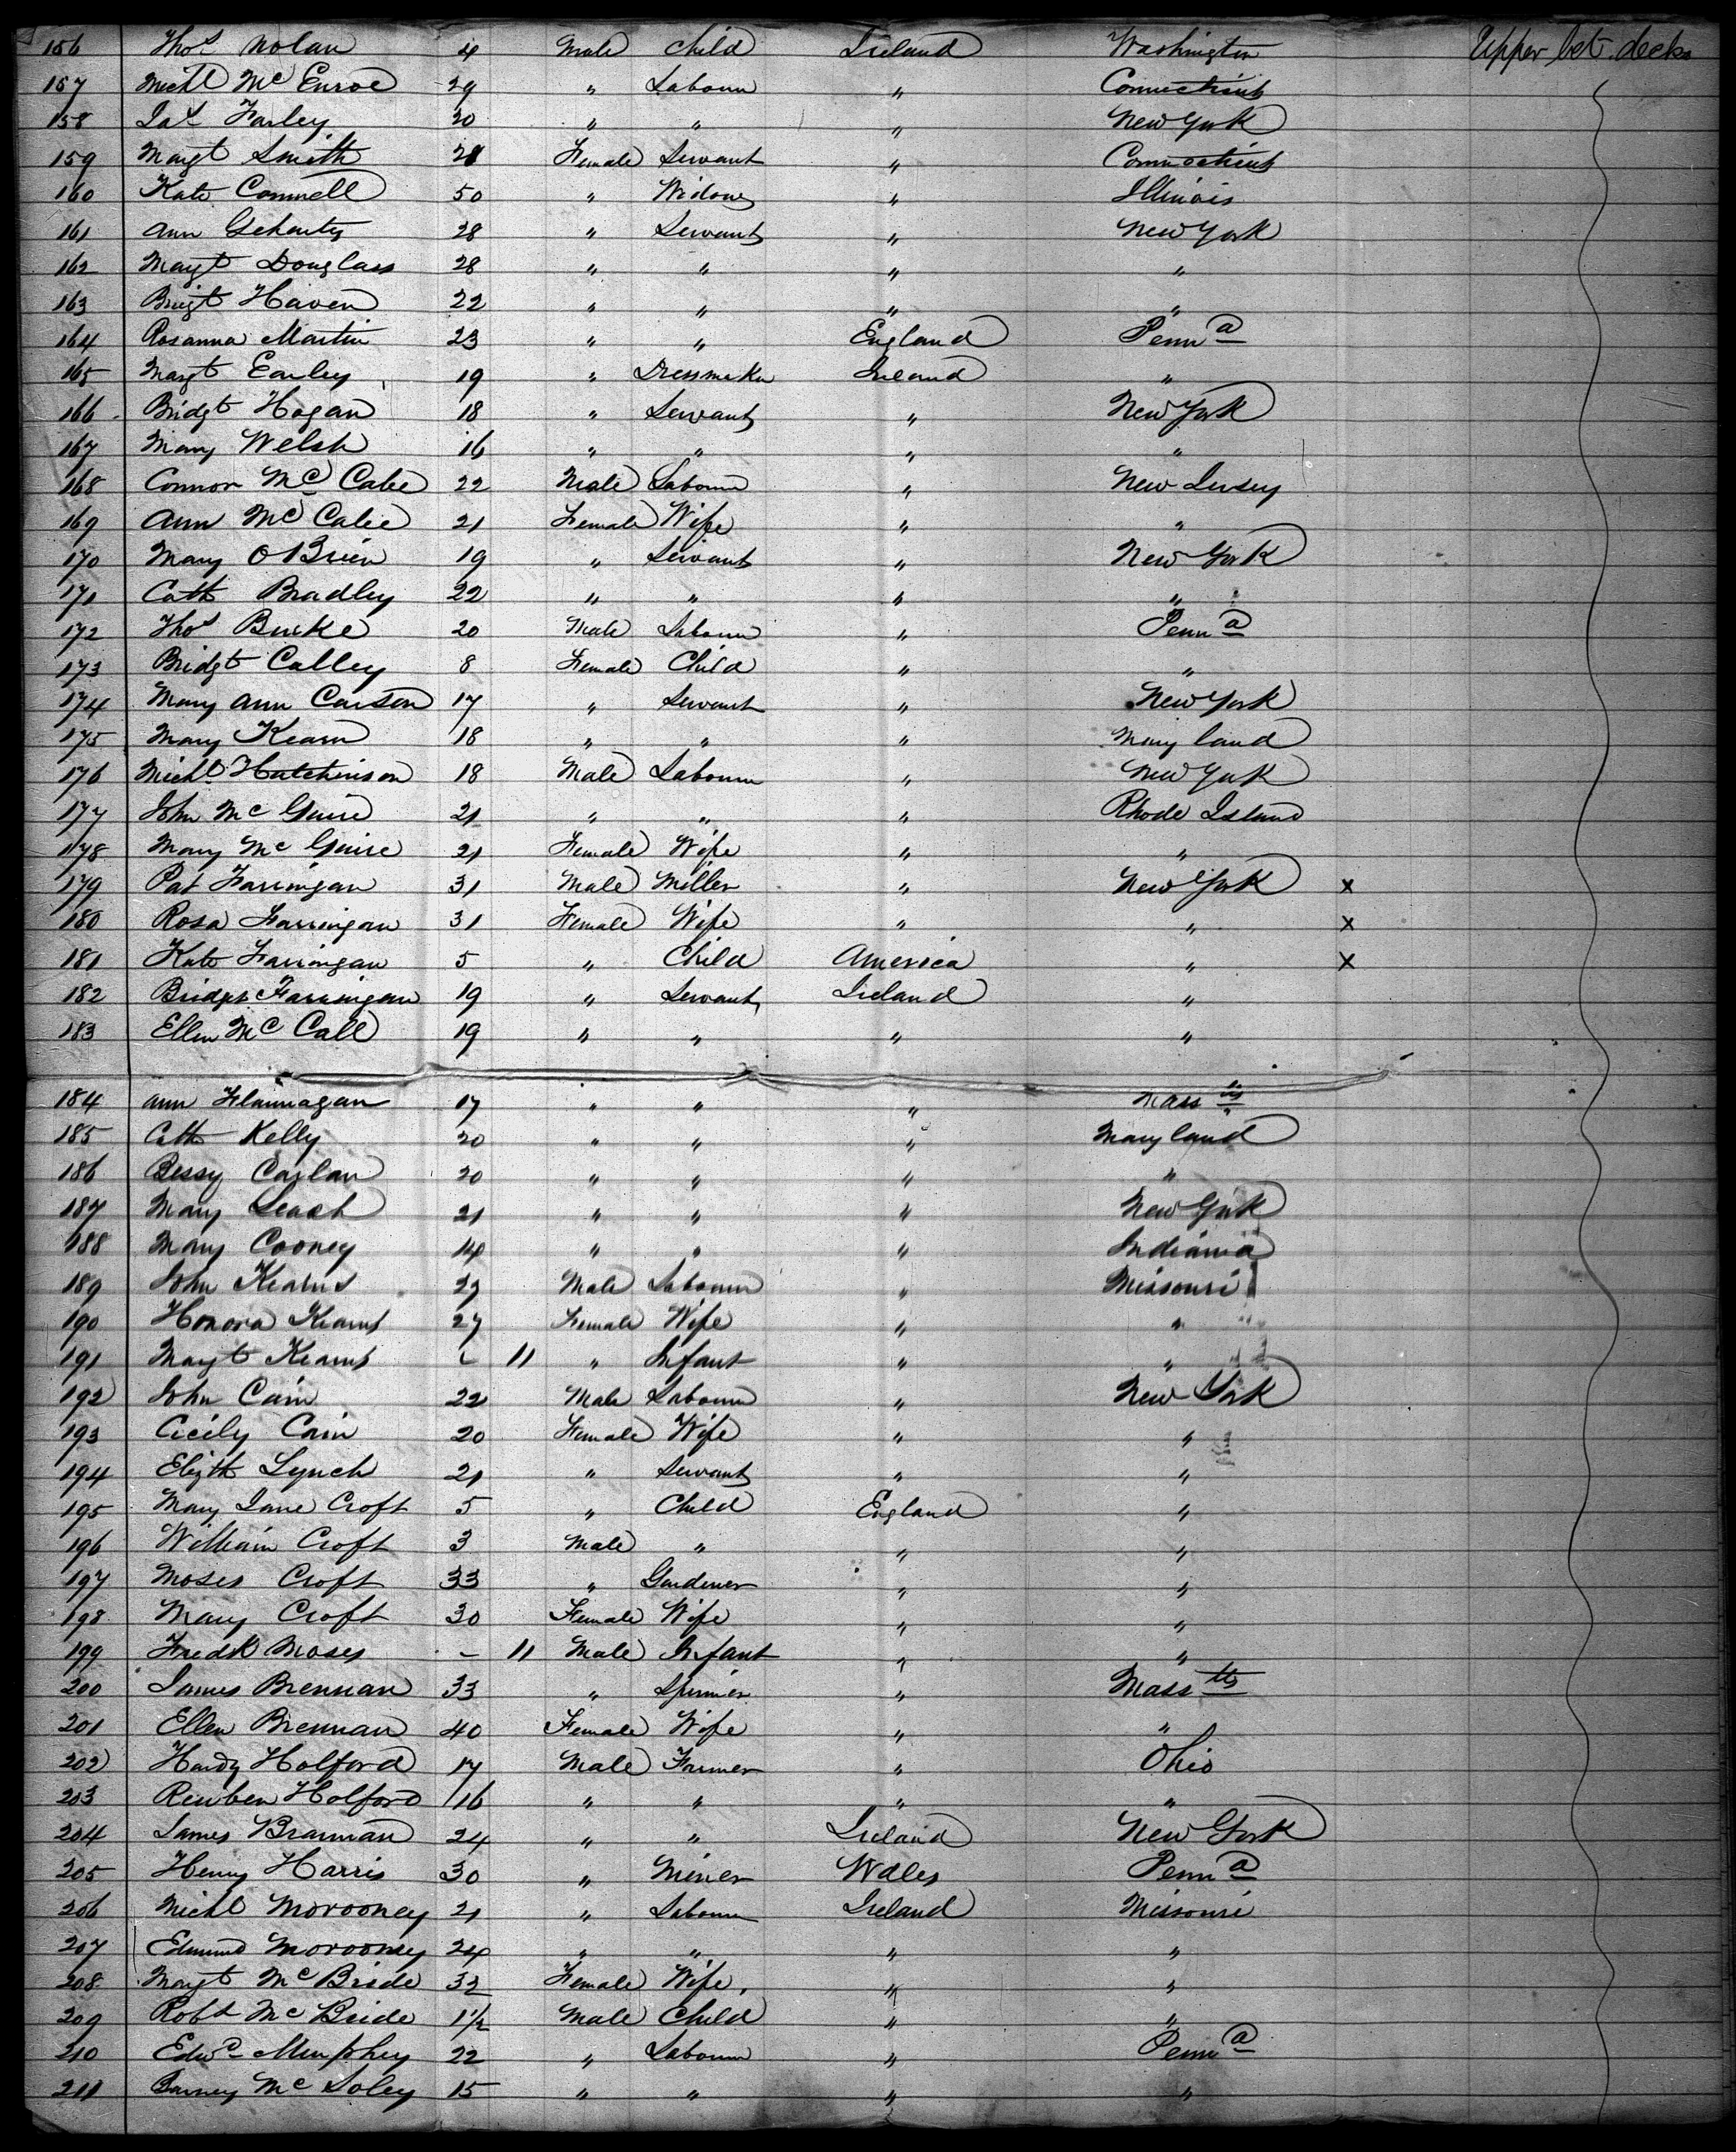 156 Thos Nolan 4 Male Child Ireland Washington Upper bet. decks
157 Michl Mc Enroe 29 " Labourer " Connecticut
158 Jas Farley 20 " " " New York
159 Margt Smith 21 Female Servant " Connecticut
160 Kate Connell 50 " Widow " Illinois
161 Ann 28 " Servant " New York
162 Margt Douglass 28 " " " "
163 Brigt Haven 22 " " " "
164 Rosanna Martin 23 " " England Penna
165 Margt Earley 19 " Dressmaker Ireland "
166 Bridgt Hogan 18 " Servant " New York
167 Mary Welsh 16 " " " "
168 Connor Mc Cabe 22 Male Labourer " New Jersey
169 Ann Mc Cabe 21 Female Wife " "
170 Mary O Brien 19 " Servant " New York
171 Cath Bradley 22 " " " "
172 Thos Burke 20 Male Labourer " Penna
173 Bridgt Calley 8 Female Child " "
174 Mary Ann Carson 17 " Servant " New York
175 Mary Kearn 18 " " " Maryland
176 Michl Hutchinson 18 Male Labourer " New York
177 John Mc Guire 21 " " " Rhode Island
178 Mary Mc Guire 21 Female Wife " "
179 Pat Farringan 31 Male Miller " New York x
180 Rosa Farringan 31 Female Wife " " x
181 Kate Farringan 5 " Child America " x
182 Bridget Farringan 19 " Servant Ireland "
183 Ellen Mc Call 19 " " " "
184 Ann Flannagan 17 " " " Mass
185 Cath Kelly 20 " " " Maryland
186 Bessy Carlan 20 " " " "
187 Mary Leach 21 " " " New York
188 Mary Cooney 14 " " " Indiana
189 John Kearns 27 Male Labourer " Missouri
190 Honora Kearns 27 Female Wife " "
191 Margt Kearns 11 " Infant " "
192 John Cain 22 Male Labourer " New York
193 Cicily Cain 20 Female Wife " "
194 Elizth Lynch 21 " Servant " "
195 Mary Jane Croft 5 " Child England "
196 William Croft 3 Male " " "
197 Moses Croft 33 " Gardener " "
198 Mary Croft 30 Female Wife " "
199 Fredk Moses - 11 Male Infant " "
200 James Brennan 33 " Spinner " Masstts
201 Ellen Brennan 40 Female Wife " "
202 Hardy Holford 17 Male Farmer " Ohio
203 Reuben Holford 16 " " " "
204 James Brannan 24 " " Ireland New York
205 Henry Harris 30 " Miner Wales Penna
206 Michl Morooney 21 " Labourer Ireland Missouri
207 Edmund Morooney 24 " " " "
208 Margt Mc Bride 32 Female Wife " "
209 Robt Mc Bride 1½ Male Child " "
210 Edwd Murphey 22 " Labourer " Penna
211 Barney Mc Soley 15 " " " "